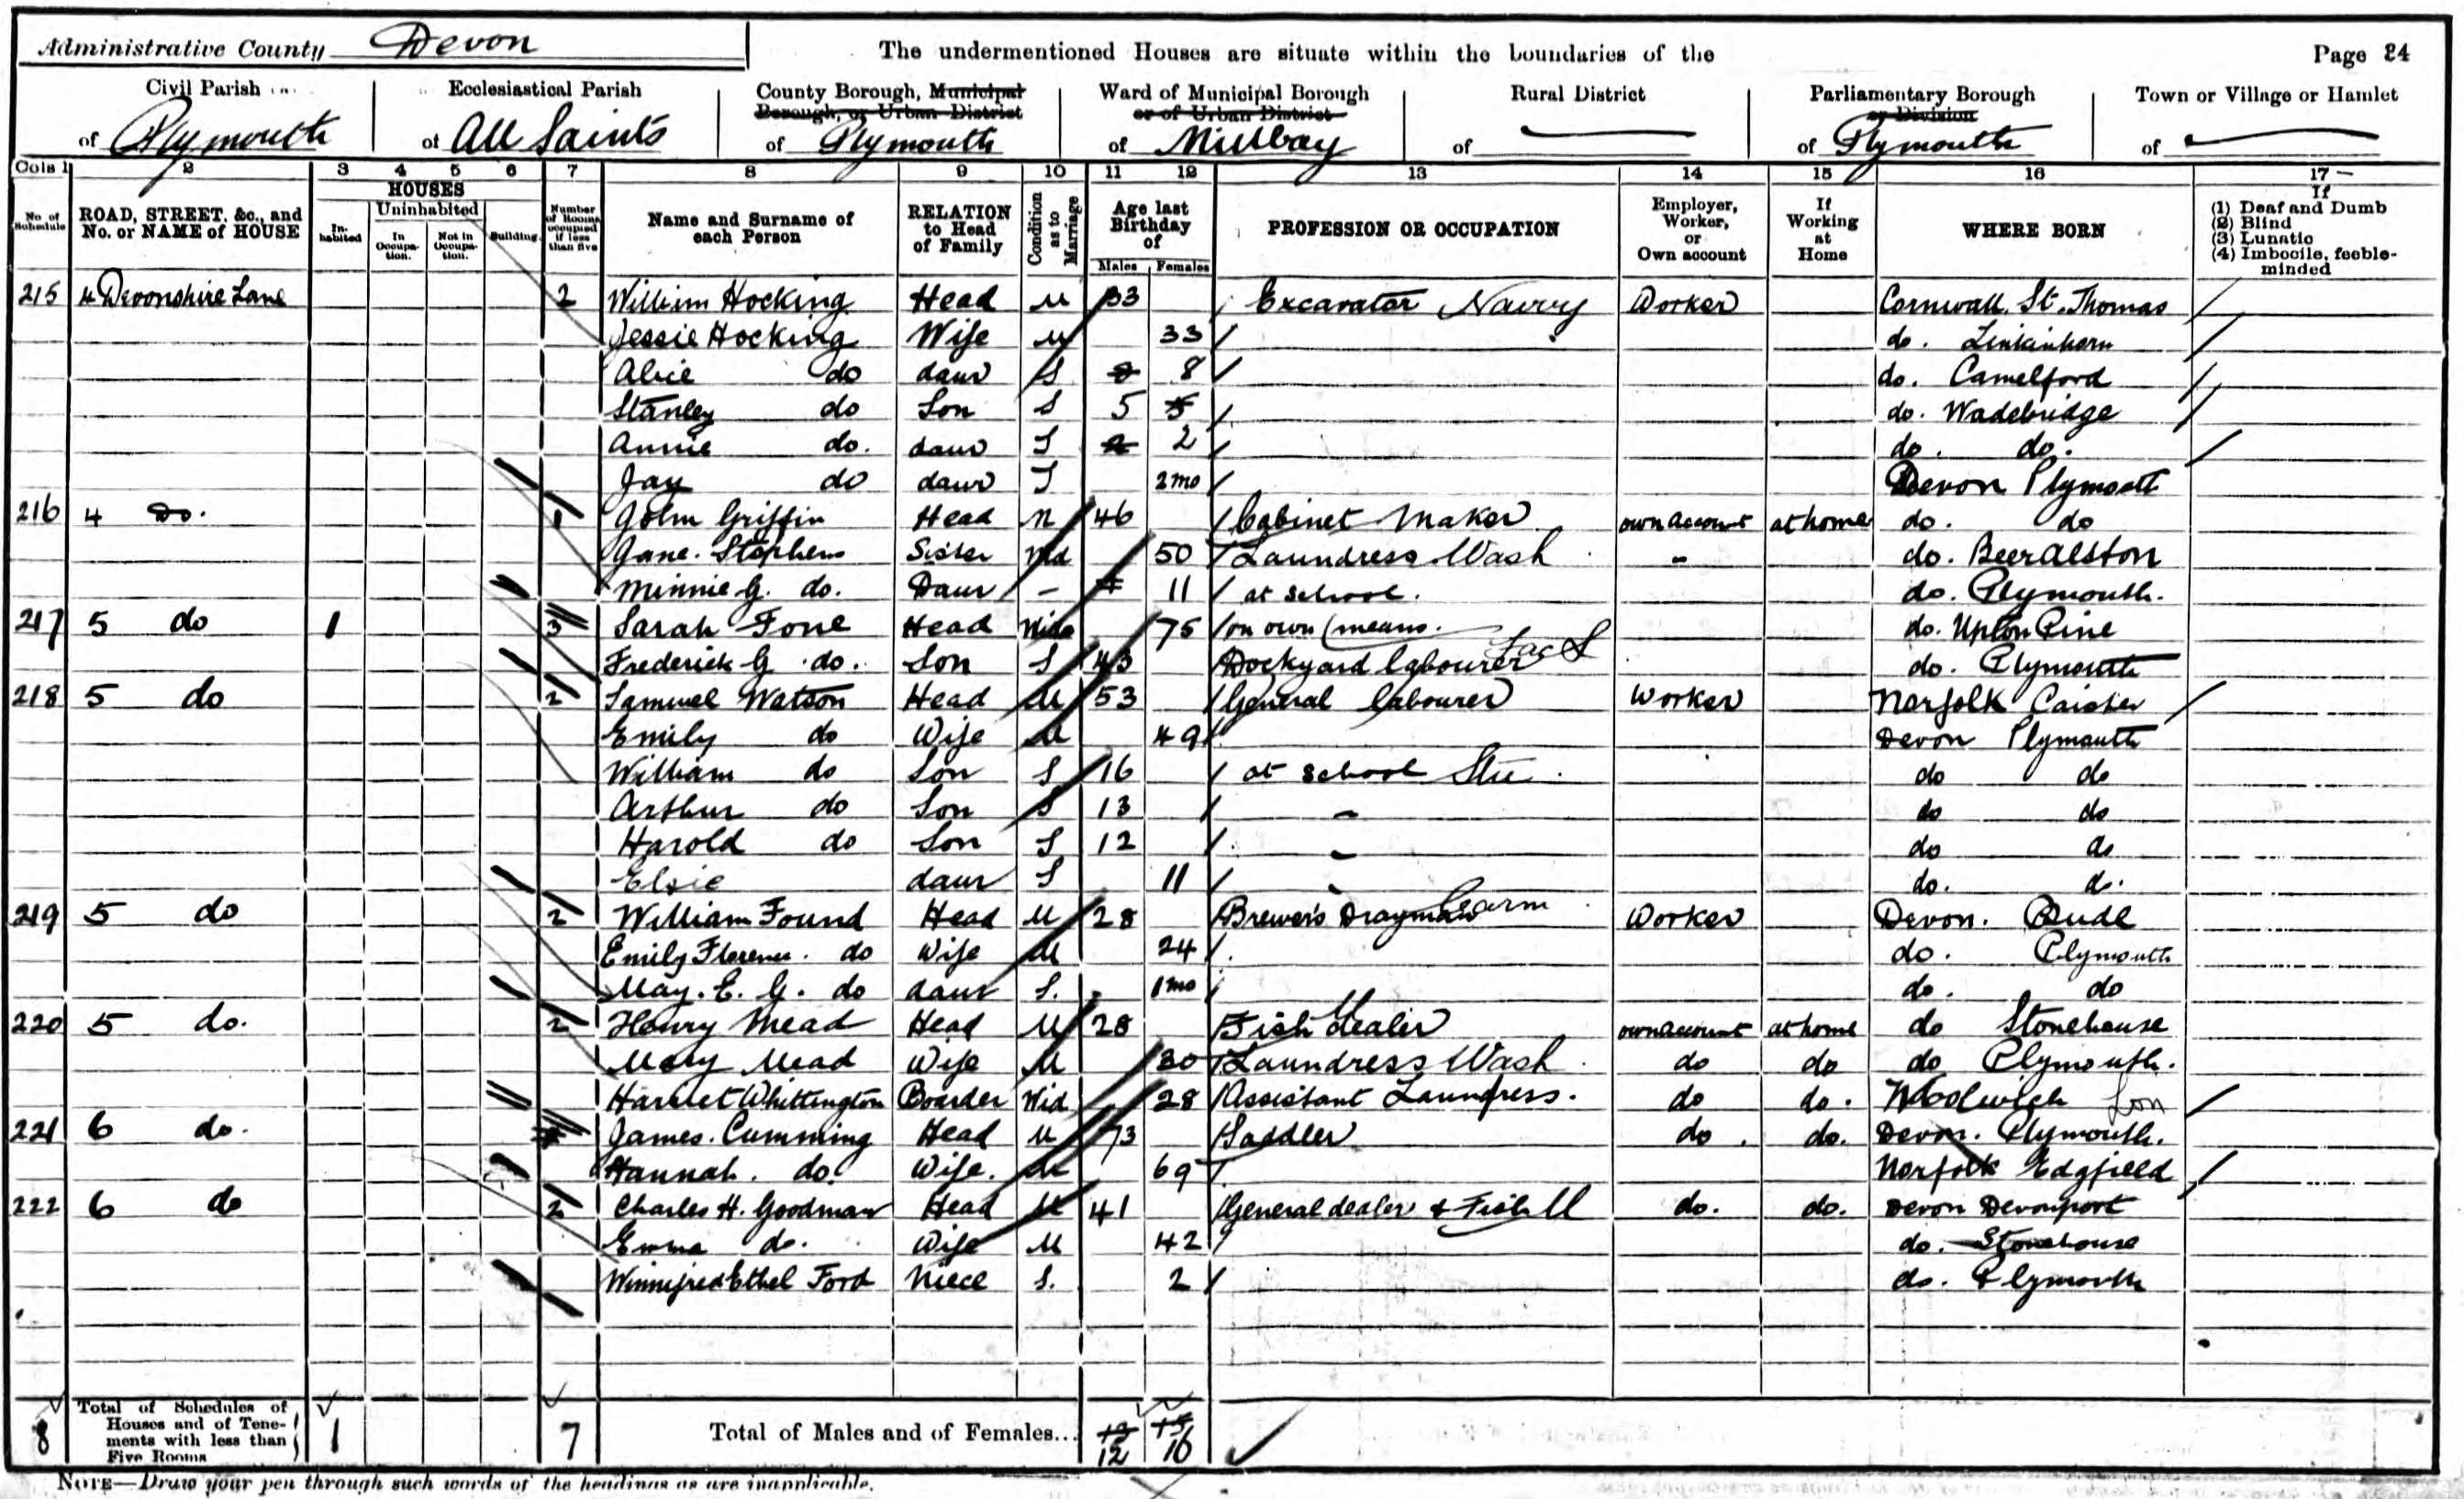 Administrative County Devon The undermentioned Houses are situate within the boundaries of the Page 24
Civil Parish Ecclesiastical Parish County Borough, Municipal Borough, or Urban District Ward of Municipal Borough or of Urban District Rural District Parliamentary Borough or Division Town or Village or Hamlet
of Plymouth of All Saints of Plymouth of Millbay of — of Plymouth of —
Cols 1 2 3 4 5 6 7 8 9 10 11 12 13 14 15 16 17
No. of Schedule ROAD, STREET, &c., and No. or NAME of HOUSE HOUSES In-habited Uninhabited In Occupa-tion. Not in Occupa-tion. Building. Number of Rooms occupied if less than five Name and Surname of each Person RELATION to Head of Family Condition as to Marriage Age last Birthday of Males Females PROFESSION OR OCCUPATION Employer, Worker, or Own account If Working at Home WHERE BORN If (1) Deaf and Dumb (2) Blind (3) Lunatic (4) Imbecile, feeble-minded
215 4 Devonshire Lane 2 William Hocking Head M 33 Excavator Navvy Worker Cornwall. St. Thomas
Jessie Hocking Wife M 33 do. Linkinhorn
Alice do daur S 8 do. Camelford
Stanley do Son S 5 5 do. Wadebridge
Annie do. daur S 2 2 do. do.
Jay do daur S 2mo Devon Plymouth
216 4 Do. 1 John Griffin Head 46 Cabinet Maker own account at home do. do
Jane Stephens Sister Wid 50 Laundress Wash - do. Beeralston
Minnie G. do. Daur - 11 at school. do. Plymouth.
217 5 do 1 3 Sarah Fone Head Wido 75 on own means. do. Upton Pine
Frederick G. do. Son S 43 Dockyard labourer do. Plymouth
218 5 do 2 Samuel Watson Head M 53 General labourer Worker Norfolk Caister
Emily do Wife M 49 Devon Plymouth
William do Son S 16 at school Stu do do
Arthur do Son S 13 - do do
Harold do Son S 12 - do do
Elsie daur S 11 do. do.
219 5 do 2 William Found Head M 28 Brewer's Drayman Carm Worker Devon. Bude
Emily Florence. do Wife M 24 do. Plymouth
May. E. G. do daur S. 1mo do. do
220 5 do. 2 Henry Mead Head M 28 Fish dealer own account at home do Stonehouse
Mary Mead Wife M 30 Laundress Wash do do do Plymouth.
Harriet Whittington Boarder Wid 28 Assistant Laundress. do do. Woolwich Lon
221 6 do. James. Cumming Head M 73 Saddler do. do. Devon. Plymouth.
Hannah. do. Wife. M 69 Norfolk Edgfield
222 6 do 2 Charles H. Goodman Head M 41 General dealer & Fish M do. do. Devon Devonport
Emma do. Wife M 42 do. Stonehouse
Winnifred Ethel Ford Niece S. 2 do. Plymouth
8 Total of Schedules of Houses and of Tene-ments with less than Five Rooms 1 7 Total of Males and of Females... 13 15
12 16
NOTE—Draw your pen through such words of the headings as are inapplicable.